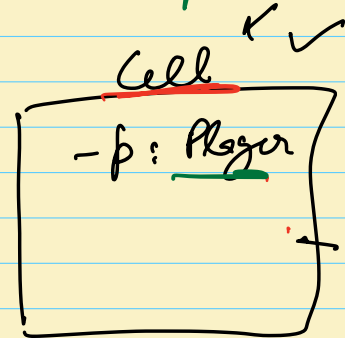 Cell
- p : Player